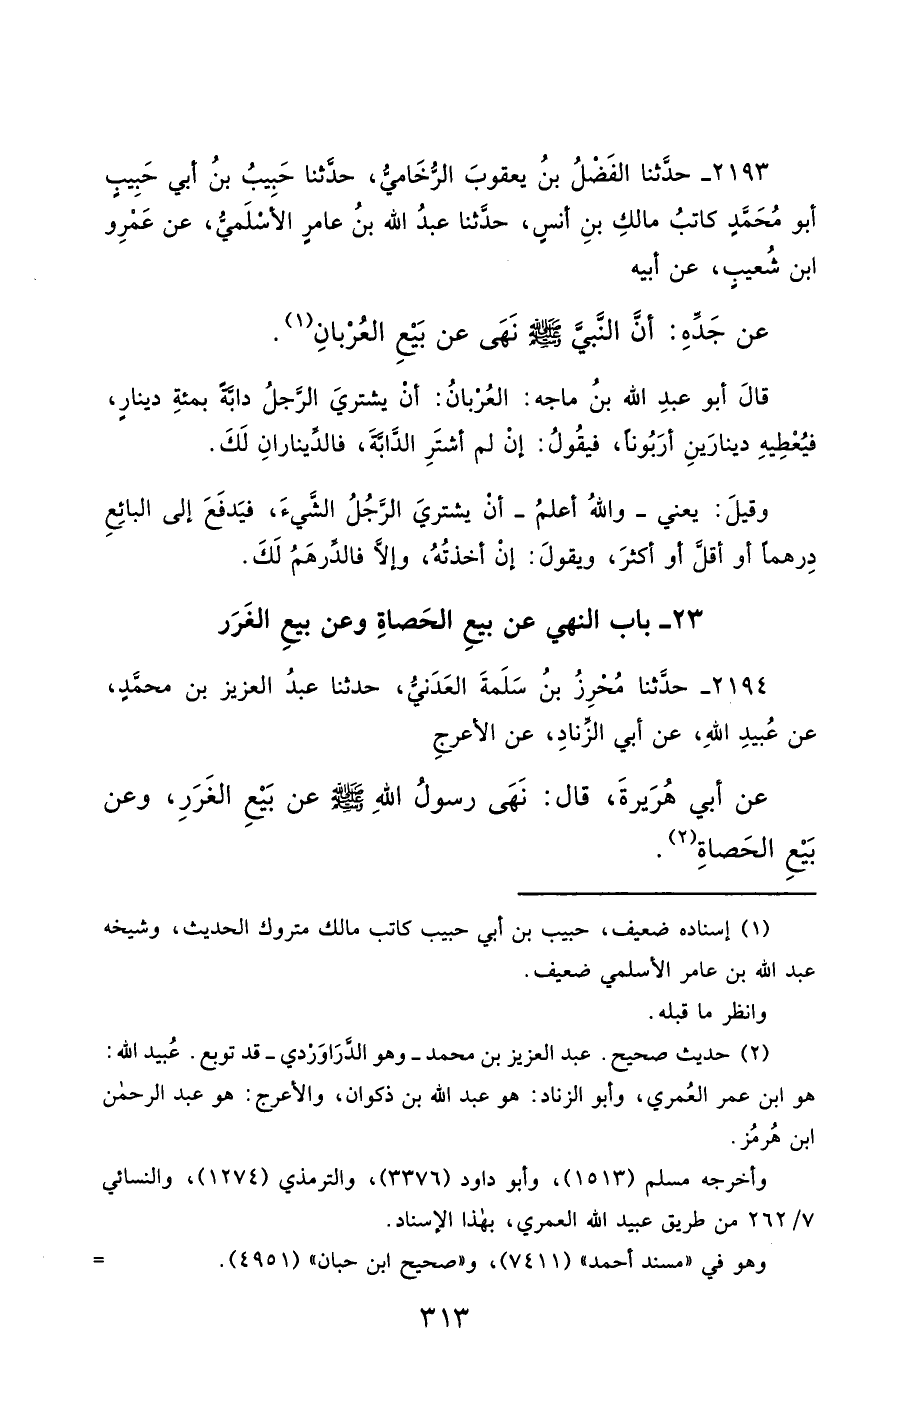 ٢١٩٣ـ حدَّثنا الفَضْلُ بنُ يعقوبَ الرُّخَاميُّ، حدَّثنا حَبِيبُ بنُ أبي حَبِيبٍ
أبو مُحَمَّدٍ كاتبُ مالكِ بنِ أنسٍ، حدَّثنا عبدُ الله بنُ عامرٍ الأسْلَميُّ، عن عَمْرِو
ابن شُعيبٍ، عن أبيه
عن جَدِّهِ: أنَّ النَّبيَّ ﷺ نَهَى عن بَيْعِ العُرْبانِ(١).
قالَ أبو عبدِ الله بنُ ماجه: العُرْبانُ: أنْ يشتريَ الرَّجلُ دابَّةً بمئةِ دينارٍ،
فيُعْطِيهِ دينارَينِ أرَبُوناً، فيقُولُ: إنْ لم أشترِ الدَّابَّةَ، فالدِّينارانِ لَكَ.
وقيلَ: يعني ـ واللهُ أعلمُ ـ أنْ يشتريَ الرَّجُلُ الشَّيءَ، فيَدفَعَ إلى البائِعِ
دِرهماً أو أقلَّ أو أكثرَ، ويقولَ: إنْ أخذتُهُ، وإلاَّ فالدِّرهَمُ لَكَ.
٢٣ـ باب النهي عن بيعِ الحَصاةِ وعن بيعِ الغَرَر
٢١٩٤ـ حدَّثنا مُحْرِزُ بنُ سَلَمةَ العَدَنيُّ، حدثنا عبدُ العزيز بن محمَّدٍ،
عن عُبيدِ اللهِ، عن أبي الزِّنادِ، عن الأعرجِ
عن أبي هُرَيرةَ، قال: نَهَى رسولُ اللهِ ﷺ عن بَيْعِ الغَرَرِ، وعن
بَيْعِ الحَصاةِ(٢).
(١) إسناده ضعيف، حبيب بن أبي حبيب كاتب مالك متروك الحديث، وشيخه
عبد الله بن عامر الأسلمي ضعيف.
وانظر ما قبله.
(٢) حديث صحيح. عبد العزيز بن محمد ـ وهو الدَّرَاوَرْدي ـ قد توبع. عُبيد الله:
هو ابن عمر العُمري، وأبو الزناد: هو عبد الله بن ذكوان، والأعرج: هو عبد الرحمٰن
ابن هُرمُز.
وأخرجه مسلم (١٥١٣)، وأبو داود (٣٣٧٦)، والترمذي (١٢٧٤)، والنسائي
٧/ ٢٦٢ من طريق عبيد الله العمري، بهٰذا الإسناد.
وهو في «مسند أحمد» (٧٤١١)، و«صحيح ابن حبان» (٤٩٥١). =
٣١٣